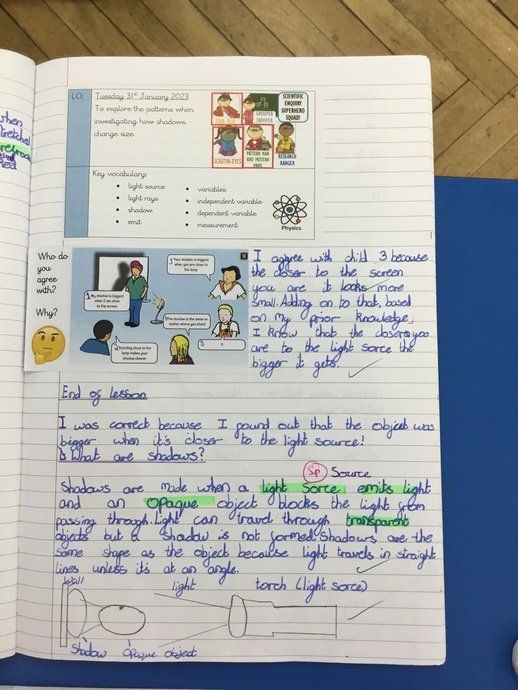 when
stretched
LO:
Tuesday 31st January 2023
To explore the patterns when
investigating how shadows
change size
FAIR TED
GROUPER
TROOPER
SCIENTIFIC
ENQUIRY
SUPERHERO
SQUAD!
PATTERN PAM
AND PATTERN
PAWS
RESEARCH
RANGER
Key vocabulary:
light source
light rays
shadow
emit
variables
independent variable
dependent variable
measurement
Physics
Who do
you
agree
with?
Why?
1 My shadow is biggest
when I am close
to the screen
3 Your shadow is biggest
when you are close to
the lamp
The shadow is the same no
matter where you stand!
2 Standing close to the
lamp makes your
shadow clearer!
?
X
I aggree with child 3 because
the closer to the screen
you are it looks more
small. Adding on to that, based
on my prior knowledge,
I know that the closer you
are to the light sorce the
bigger it gets.
End of lesson
I was correct because I found out that the object was
bigger when it's closer to the light source!
What are shadows?
Sp Source
Shadows are made when a light sorce emits light
and an opaque object blocks the light from
passing through. Light can travel through transparent
objects but a shadow is not formed. Shadows are the
same shape as the object because light travels in straight
lines unless it's at an angle.
Wall
light
torch (light sorce)
Shadow
Opaque object